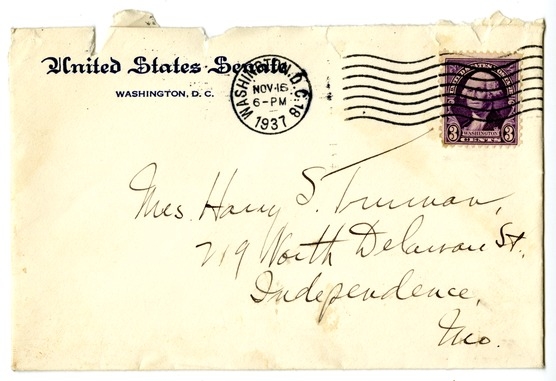 United States Senate
WASHINGTON, D. C.
WASHINGTON, D.C. 18
NOV 16
6-PM
1937
UNITED STATES POSTAGE
3 WASHINGTON 3
CENTS
Mrs. Harry S. Truman,
219 North Delaware St.
Independence,
Mo.